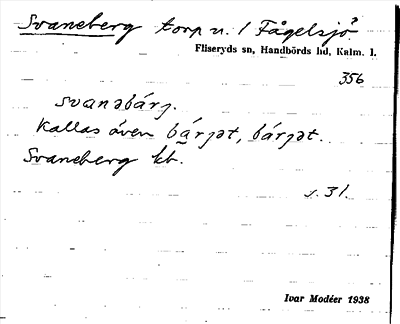 Svaneberg torp u. / Fågelsjö
Fliseryds sn, Handbörds hd, Kalm. l.
356
svanəbárj.
Kallas även bárjət, bárjət.
Svaneberg kb.
s. 31.
Ivar Modéer 1938